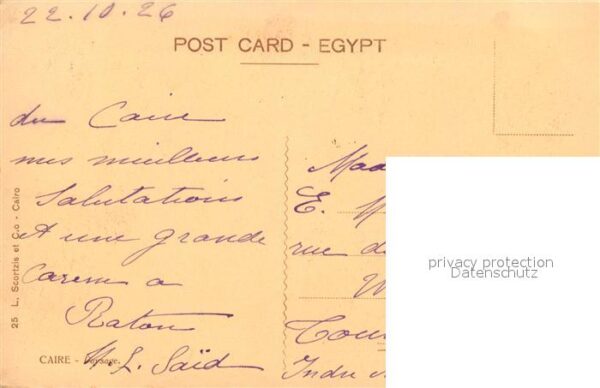 22.10.26
POST CARD - EGYPT
du Caire
mes meilleurs
Salutations
A une grande
caresse a
Raton
L. Saïd
25 L. Scortzis et C.o - Cairo
CAIRE - Paysage.
E.
rue de
Indre
privacy protection
Datenschutz